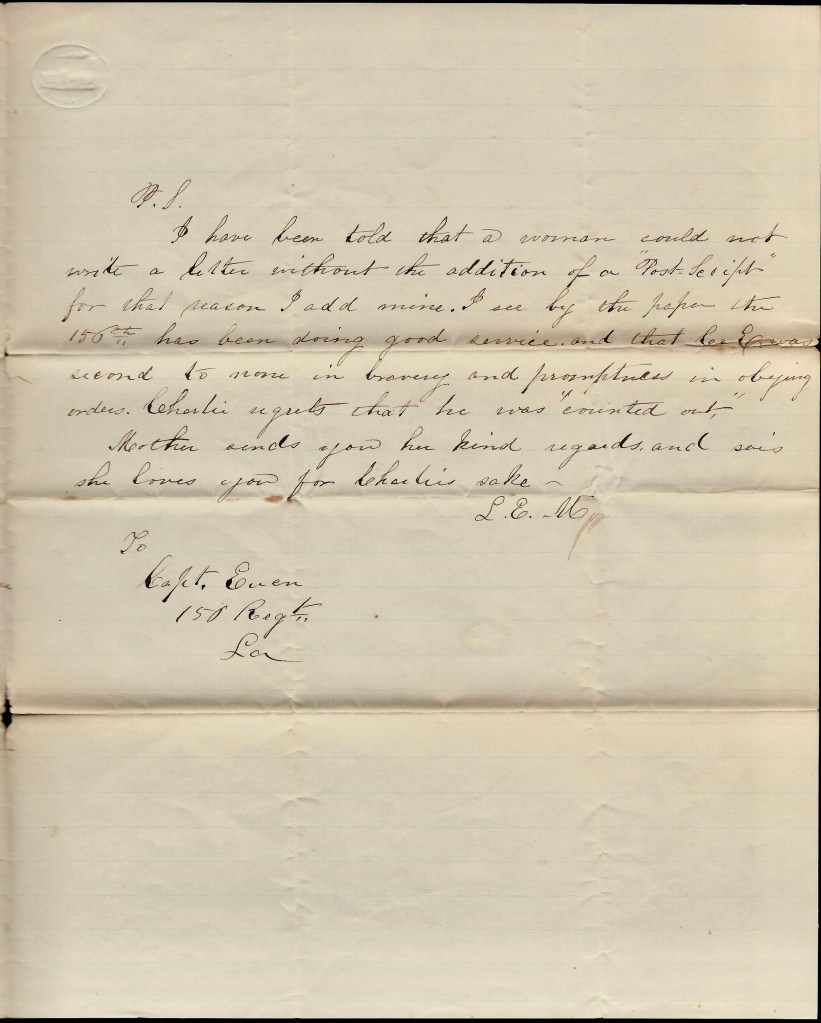 P.S.
I have been told that a woman "could not
write a letter without the addition of a "Post-Script"
for that reason I add mine. I see by the paper the
156th has been doing good service. and that Co E. was
second to none in bravery and promptness in obeying
orders. Charlie regrets that he was "counted out,"
Mother sends you her kind regards. and sais
she loves you for Charlie's sake –
L. E. M
To
Capt. Euen
156 Regt.
La